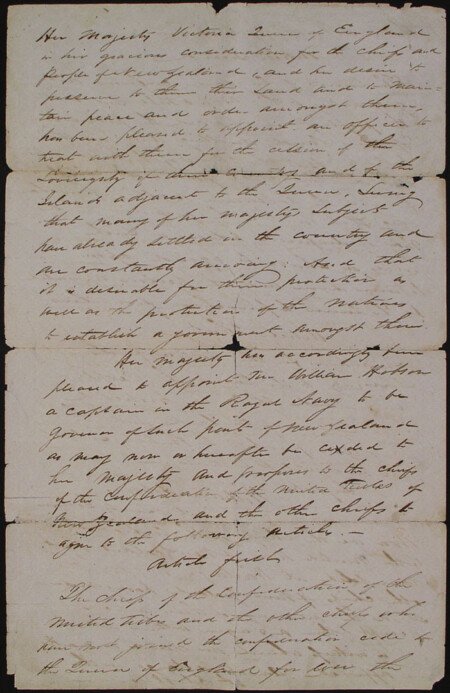 Her Majesty Victoria Queen of England
in her gracious consideration for the chiefs and
people of New Zealand, and her desire to
preserve to them their land and to main-
tain peace and order amongst them,
has been pleased to appoint an officer to
treat with them for the cession of the
Sovreignty of their country and of the
Islands adjacent to the Queen. Seeing
that many of her Majesty's subjects
have already settled in the country and
are constantly arriving: And that
it is desirable for their protection as
well as the protection of the natives
to establish a government amongst them.
Her Majesty has accordingly been
pleased to appoint Mr William Hobson
a captain in the Royal Navy to be
Governor of such parts of New Zealand
as may now or hereafter be ceded to
her Majesty and proposes to the chiefs
of the Confederation of the United Tribes of
New Zealand and the other chiefs to
agree to the following articles.—
Article first
The chiefs of the Confederation of the
United tribes and the other chiefs who
have not joined the confederation cede to
the Queen of England for ever the